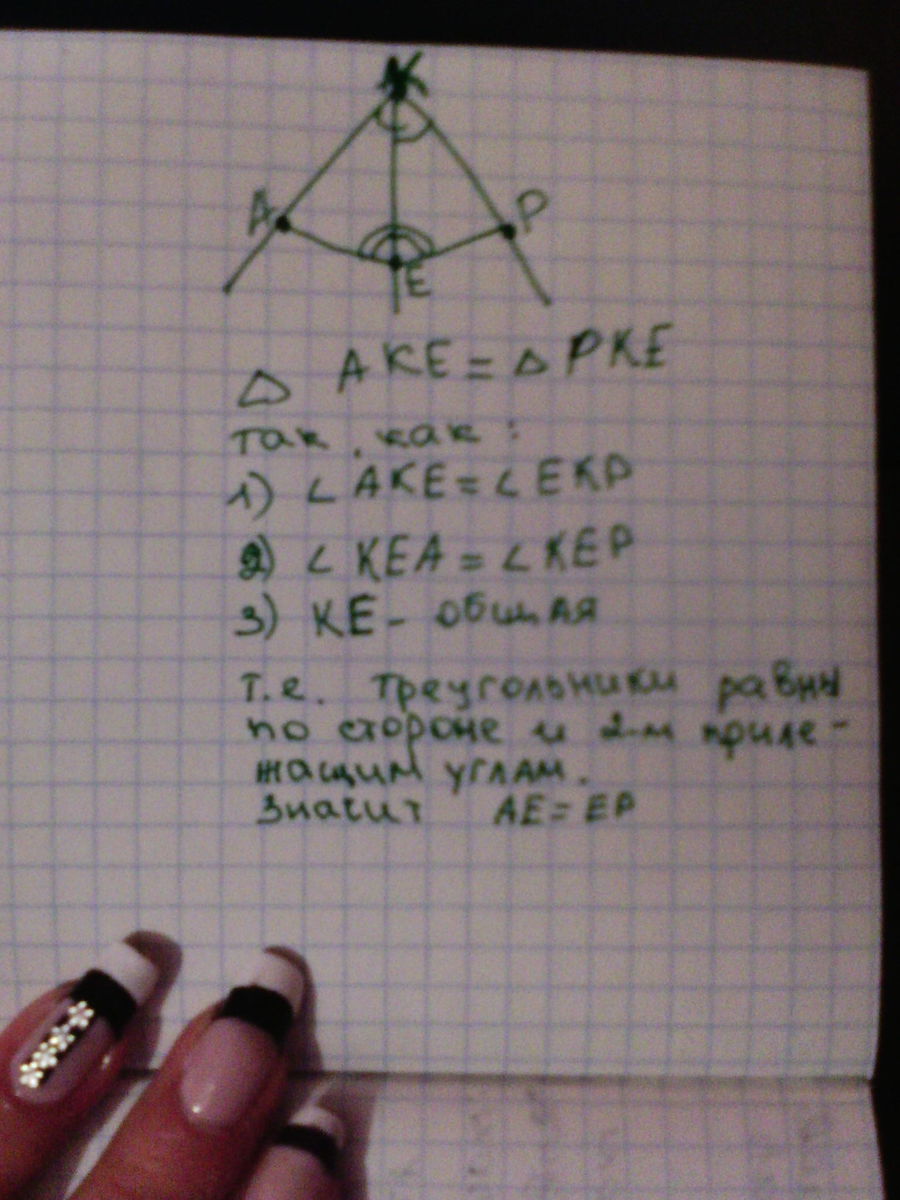 K
A
P
E
Δ AKE = Δ PKE
так, как:
1) ∠ AKE = ∠ EKP
2) ∠ KEA = ∠ KEP
3) KE - общая
т.е. треугольники равны
по стороне и 2-м приле-
жащим углам.
Значит AE = EP